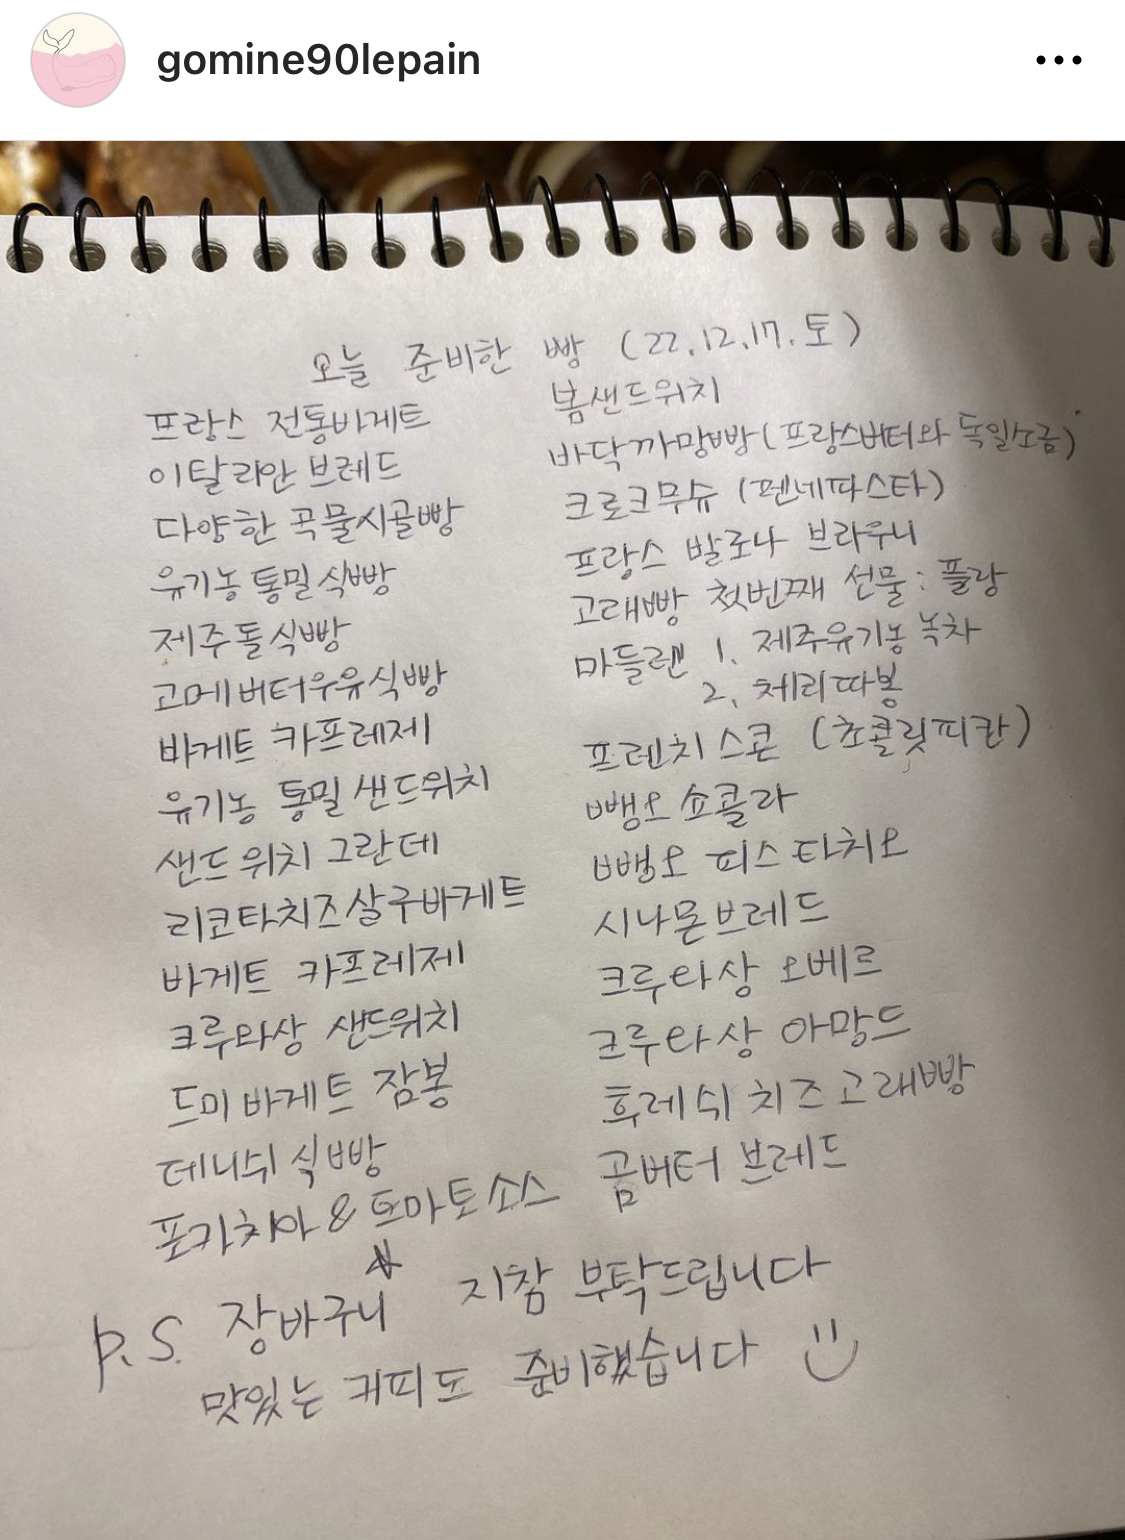 gomine90lepain
오늘 준비한 빵 (22.12.17.토)
프랑스 전통바게트
이탈리안 브레드
다양한 곡물시골빵
유기농 통밀 식빵
제주돌식빵
고메버터우유식빵
바게트 카프레제
유기농 통밀 샌드위치
샌드위치 그란데
리코타치즈살구바게트
바게트 카프레제
크루와상 샌드위치
드미 바게트 잠봉
데니쉬 식빵
포카치아 & 토마토소스
봄샌드위치
바닥까망빵(프랑스버터와 독일소금)
크로크무슈 (펜네파스타)
프랑스 발로나 브라우니
고래빵 첫번째 선물: 플랑
마들렌 1. 제주유기농녹차
2. 체리따봉
프렌치스콘 (초콜릿피칸)
뺑오 쇼콜라
뺑오 피스타치오
시나몬브레드
크루와상 오베르
크루와상 아망드
후레쉬 치즈고래빵
곰버터 브레드
P.S. 장바구니 지참 부탁드립니다
맛있는 커피도 준비했습니다